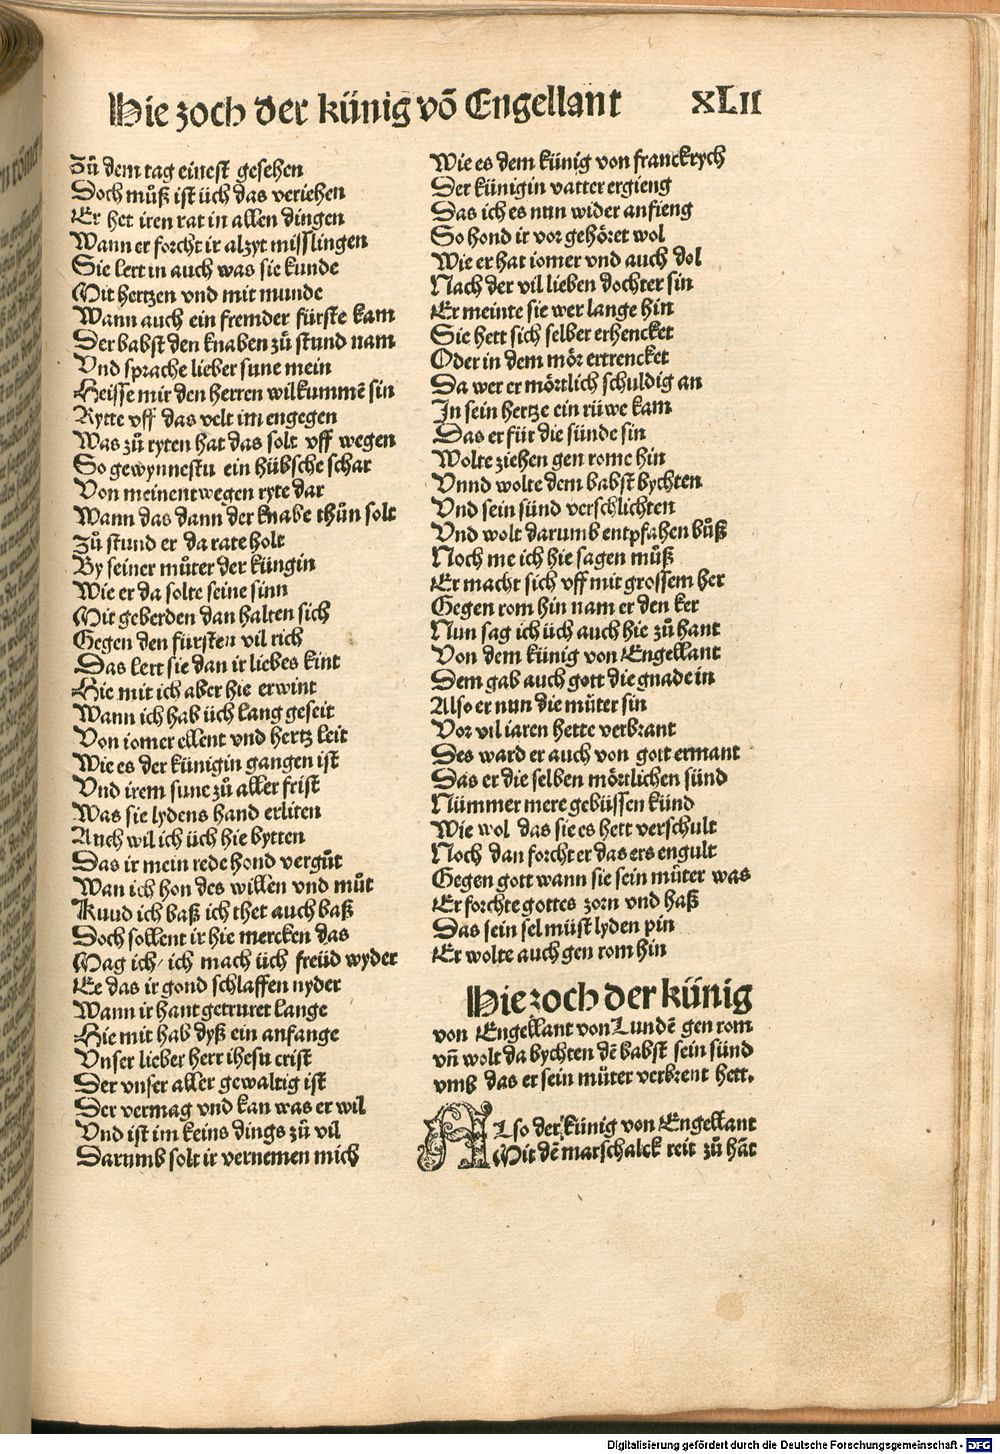 Hie zoch der künig vō Engellant XLII
Zů dem tag einest gesehen
Doch můß ist üch das veriehen
Er het iren rat in allen dingen
Wann er forcht ir alzyt misslingen
Sie lert in auch was sie kunde
Mit hertzen vnd mit munde
Wann auch ein fremder fürste kam
Der babst den knaben zů stund nam
Vnd sprache lieber sune mein
Heisse mir den herren wilkummē sin
Rytte vff das velt im engegen
Was zů ryten hat das solt vff wegen
So gewynnestu ein hübsche schar
Von meinent wegen ryte dar
Wann das dann der knabe thůn solt
Zů stund er da rate holt
By seiner můter der küngin
Wie er da solte seine sinn
Mit geberden dan halten sich
Gegen den fürsten vil rich
Das lert sie dan ir liebes kint
Hie mit ich aber hie erwint
Wann ich hab üch lang geseit
Von iomer ellent vnd hertz leit
Wie es der künigin gangen ist
Vnd irem sune zů aller frist
Was sie lydens hand erliten
Auch wil ich üch hie bytten
Das ir mein rede hond vergůt
Wan ich hon des willen vnd můt
Kuud ich baß ich thet auch baß
Doch sollent ir hie mercken das
Mag ich/ ich mach üch freüd wyder
Ee das ir gond schlaffen nyder
Wann ir hant getruret lange
Hie mit hab dyß ein anfange
Vnser lieber herr ihesu crist
Der vnser aller gewaltig ist
Der vermag vnd kan was er wil
Vnd ist im keins dings zů vil
Darumb solt ir vernemen mich
Wie es dem künig von franckrych
Der künigin vatter ergieng
Das ich es nun wider anfieng
So hond ir vor gehöret wol
Wie er hat iomer vnd auch dol
Nach der vil lieben dochter sin
Er meinte sie wer lange hin
Sie hett sich selber erhencket
Oder in dem mör ertrencket
Da wer er mörtlich schuldig an
In sein hertze ein rüwe kam
Das er für die sünde sin
Wolte ziehen gen rome hin
Vnnd wolte dem babst bychten
Vnd sein sünd verschlichten
Vnd wolt darumb entpfahen bůß
Noch me ich hie sagen můß
Er macht sich vff mit grossem her
Gegen rom hin nam er den ker
Nun sag ich üch auch hie zů hant
Von dem künig von Engellant
Dem gab auch gott die gnade in
Also er nun die můter sin
Vor vil iaren hette verbrant
Des ward er auch von gott ermant
Das er die selben mörtlichen sünd
Nümmer mere gebüssen künd
Wie wol das sie es hett verschult
Noch dan forcht er das ers engult
Gegen gott wann sie sein můter was
Er forchte gottes zorn vnd haß
Das sein sel müst lyden pin
Er wolte auch gen rom hin
Hie zoch der künig
von Engellant von Lundē gen rom
vñ wolt da bychten dē babst sein sünd
vmb das er sein můter verbrent hett.
ALso der künig von Engellant
Mit dē marschalck reit zů hāt
Digitalisierung gefördert durch die Deutsche Forschungsgemeinschaft - DFG